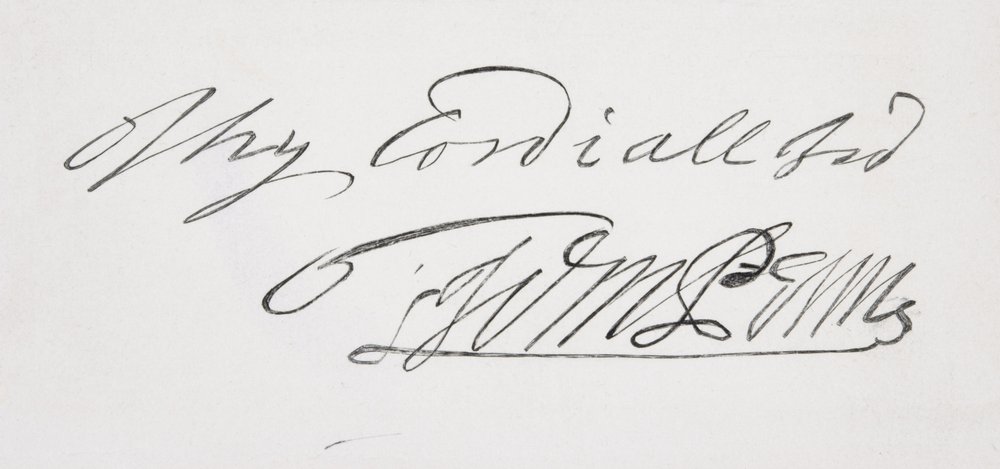 Thy Cordiall frd
Wm Penn